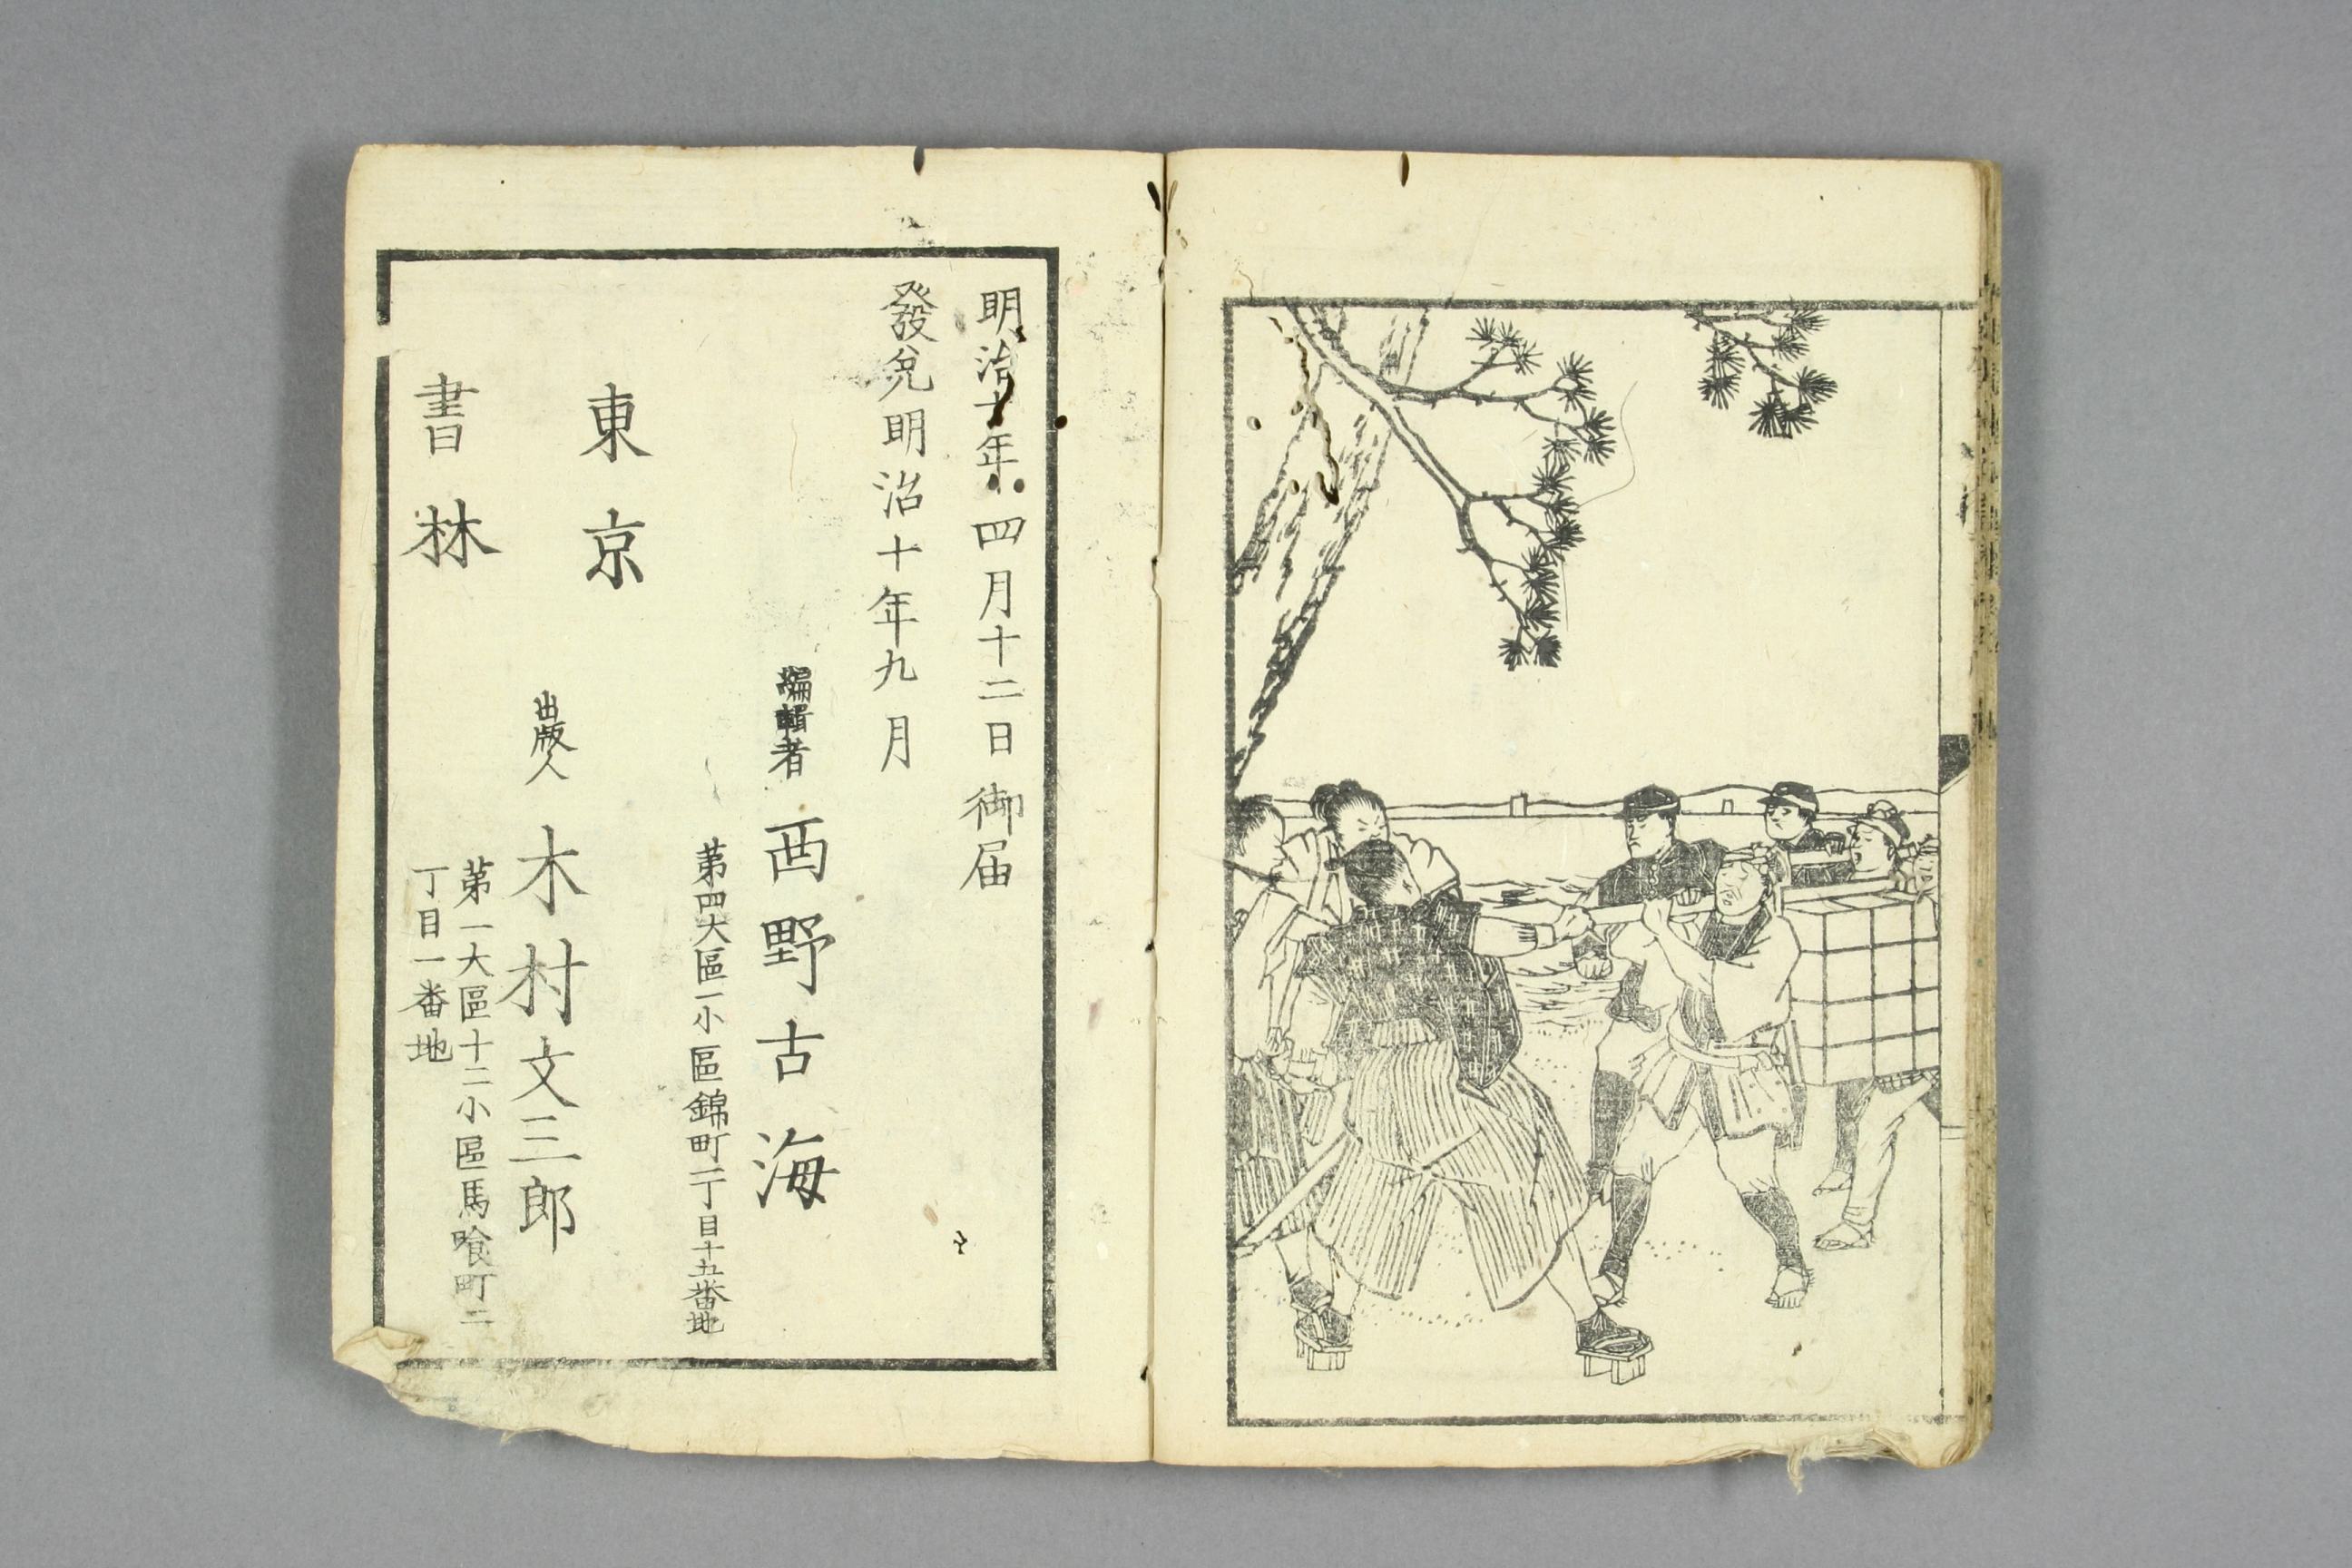 明治十年四月十二日御届
發兌明治十年九月
編輯者 西野古海
第四大區一小區錦町二丁目十五番地
東京
出版人 木村文三郎
第一大區十二小區馬喰町二
丁目一番地
書林